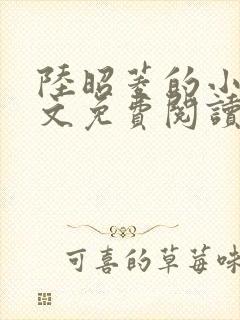 陸昭菱的小
文免費閱讀
可喜的草莓味